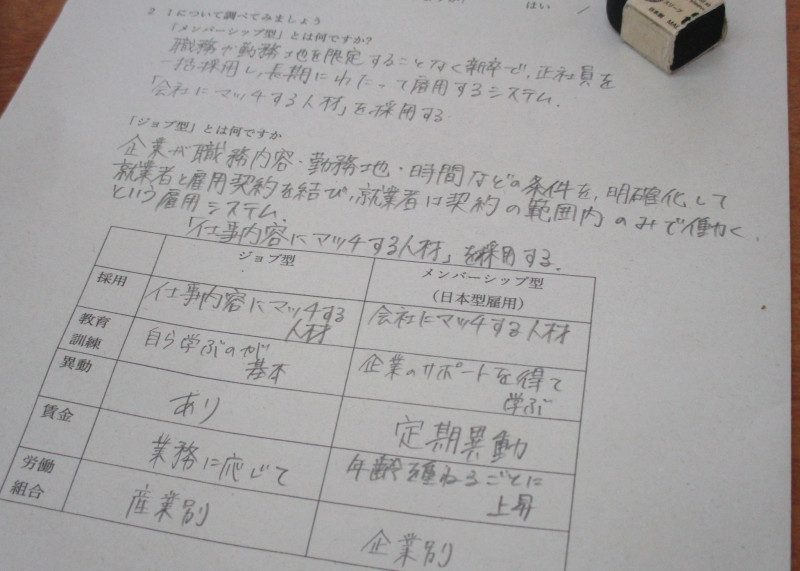 はい
2 1について調べてみましょう
「メンバーシップ型」とは何ですか?
職務や勤務地を限定することなく新卒で、正社員を
一括採用し、長期にわたって雇用するシステム.
「会社にマッチする人材」を採用する.
「ジョブ型」とは何ですか
企業が職務内容・勤務地・時間などの条件を、明確化して
就業者と雇用契約を結び、就業者は契約の範囲内のみで働く.
という雇用システム.
「仕事内容にマッチする人材」を採用する.
ジョブ型
メンバーシップ型
(日本型雇用)
採用
仕事内容にマッチする
人材
会社にマッチする人材
教育
訓練
自ら学ぶのが
基本
企業のサポートを得て
学ぶ
異動
あり
定期異動
賃金
業務に応じて
年齢を重ねるごとに
上昇
労働
組合
産業別
企業別